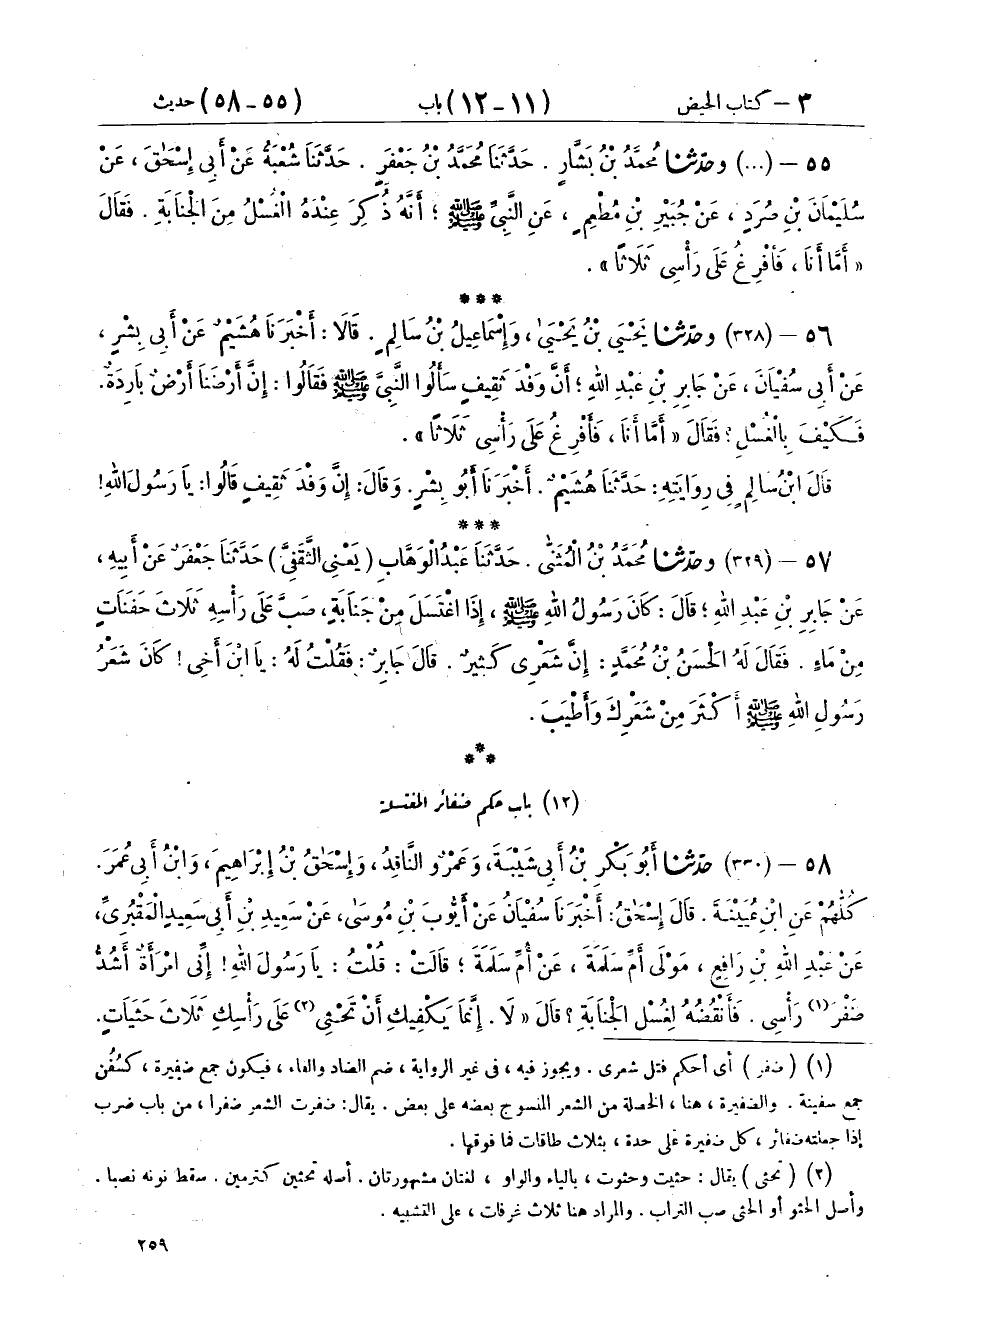 ٣ – كتاب الحيض (١١-١٢) باب (٥٥-٥٨) حديث
٥٥ – (...) وحدّثنا مُحَمَّدُ بْنُ بَشَّارٍ . حَدَّثَنَا مُحَمَّدُ بْنُ جَعْفَرٍ . حَدَّثَنَا شُعْبَةُ عَنْ أَبِي إِسْحَٰقَ ، عَنْ
سُلَيْمَانَ بْنِ صُرَدٍ ، عَنْ جُبَيْرِ بْنِ مُطْعِمٍ ، عَنِ النَّبِيِّ ﷺ ؛ أَنَّهُ ذُكِرَ عِنْدَهُ الْغُسْلُ مِنَ الْجَنَابَةِ . فَقَالَ
« أَمَّا أَنَا ، فَأُفْرِغُ عَلَى رَأْسِي ثَلَاثًا » .
***
٥٦ – (٣٢٨) وحدّثنا يَحْيَى بْنُ يَحْيَىٰ ، وَإِسْمَاعِيلُ بْنُ سَالِمٍ . قَالَا : أَخْبَرَنَا هُشَيْمٌ عَنْ أَبِي بِشْرٍ ،
عَنْ أَبِي سُفْيَانَ ، عَنْ جَابِرِ بْنِ عَبْدِ اللهِ ؛ أَنَّ وَفْدَ ثَقِيفٍ سَأَلُوا النَّبِيَّ ﷺ فَقَالُوا : إِنَّ أَرْضَنَا أَرْضٌ بَارِدَةٌ .
فَكَيْفَ بِالْغُسْلِ ؟ فَقَالَ « أَمَّا أَنَا ، فَأُفْرِغُ عَلَى رَأْسِي ثَلَاثًا » .
قَالَ ابْنُ سَالِمٍ فِي رِوَايَتِهِ : حَدَّثَنَا هُشَيْمٌ . أَخْبَرَنَا أَبُو بِشْرٍ . وَقَالَ : إِنَّ وَفْدَ ثَقِيفٍ قَالُوا : يَا رَسُولَ اللهِ !
***
٥٧ – (٣٢٩) وحدّثنا مُحَمَّدُ بْنُ الْمُثَنَّى . حَدَّثَنَا عَبْدُ الْوَهَّابِ ( يَعْنِي الثَّقَفِيَّ ) حَدَّثَنَا جَعْفَرٌ عَنْ أَبِيهِ ،
عَنْ جَابِرِ بْنِ عَبْدِ اللهِ ؛ قَالَ : كَانَ رَسُولُ اللهِ ﷺ ، إِذَا اغْتَسَلَ مِنْ جَنَابَةٍ ، صَبَّ عَلَى رَأْسِهِ ثَلَاثَ حَفَنَاتٍ
مِنْ مَاءٍ . فَقَالَ لَهُ الْحَسَنُ بْنُ مُحَمَّدٍ : إِنَّ شَعْرِي كَثِيرٌ . قَالَ جَابِرٌ : فَقُلْتُ لَهُ : يَا ابْنَ أَخِي ! كَانَ شَعْرُ
رَسُولِ اللهِ ﷺ أَكْثَرَ مِنْ شَعْرِكَ وَأَطْيَبَ .
***
(١٢) باب حكم ضفائر المغتسلة
٥٨ – (٣٣٠) حدّثنا أَبُو بَكْرِ بْنُ أَبِي شَيْبَةَ ، وَعَمْرٌو النَّاقِدُ ، وَإِسْحَٰقُ بْنُ إِبْرَاهِيمَ ، وَابْنُ أَبِي عُمَرَ .
كُلُّهُمْ عَنِ ابْنِ عُيَيْنَةَ . قَالَ إِسْحَٰقُ : أَخْبَرَنَا سُفْيَانُ عَنْ أَيُّوبَ بْنِ مُوسَىٰ ، عَنْ سَعِيدِ بْنِ أَبِي سَعِيدٍ الْمَقْبُرِيِّ ،
عَنْ عَبْدِ اللهِ بْنِ رَافِعٍ ، مَوْلَى أُمِّ سَلَمَةَ ، عَنْ أُمِّ سَلَمَةَ ؛ قَالَتْ : قُلْتُ : يَا رَسُولَ اللهِ ! إِنِّي امْرَأَةٌ أَشُدُّ
ضَفْرَ(١) رَأْسِي . فَأَنْقُضُهُ لِغُسْلِ الْجَنَابَةِ ؟ قَالَ « لَا . إِنَّمَا يَكْفِيكِ أَنْ تَحْثِي(٢) عَلَى رَأْسِكِ ثَلَاثَ حَثَيَاتٍ .
(١) ( ضفر ) أى أحكم فتل شعرى . ويجوز فيه ، فى غير الرواية ، ضم الضاد والفاء ، فيكون جمع ضفيرة ، كسُفُن
جمع سفينة . والضفيرة ، هنا ، الخصلة من الشعر المنسوج بعضه على بعض . يقال : ضفرت الشعر ضفرا ، من باب ضرب
إذا جعلته ضفائر ، كل ضفيرة على حدة ، بثلاث طاقات فما فوقها .
(٢) ( تحثى ) يقال : حثيت وحثوت ، بالياء والواو ، لغتان مشهورتان . أصله تحثين كترمين . سقط نونه نصبا .
وأصل الحثو أو الحثى صب التراب . والمراد هنا ثلاث غرفات ، على التشبيه .
٢٥٩